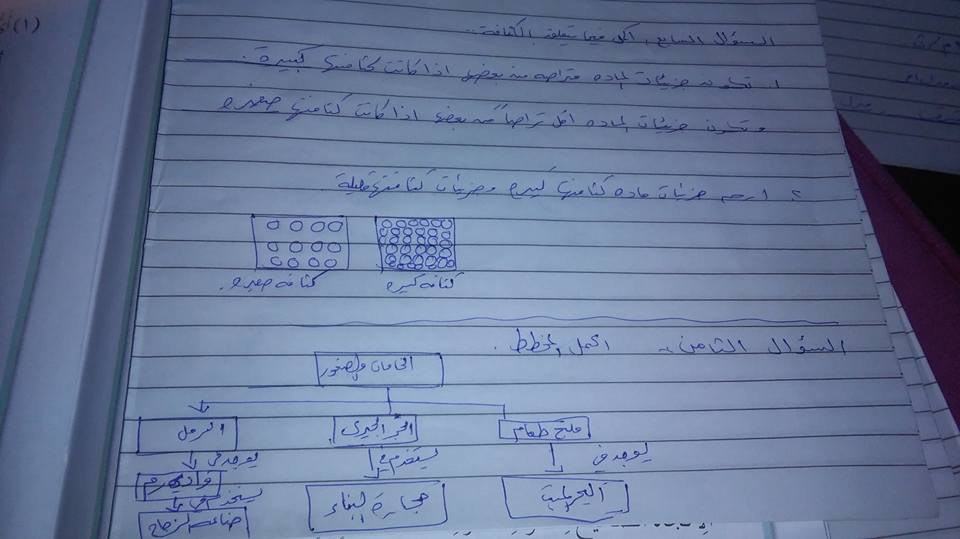 السؤال السابع: اكمل فيما يتعلق بالكثافة..
١. تكون جزيئات المادة متراصه من بعضها اذا كانت كثافتها كبيرة.
وتكون جزيئات المادة اقل تراصاً من بعضها اذا كانت كثافتها صغيره
٢. ارسم جزيئات ماده كثافتها كبيره وجزيئات كثافتها قليلة
كثافه كبيره
كثافه صغيره.
السؤال الثامن: اكمل المخطط.
الخامات والصخور
ملح طعام
الحجر الجيري
الرمل
يوجد في
يستخدم في
يوجد في
البحر الميت
حجارة البناء
وادي رم
يستخدم في
صناعه الزجاج